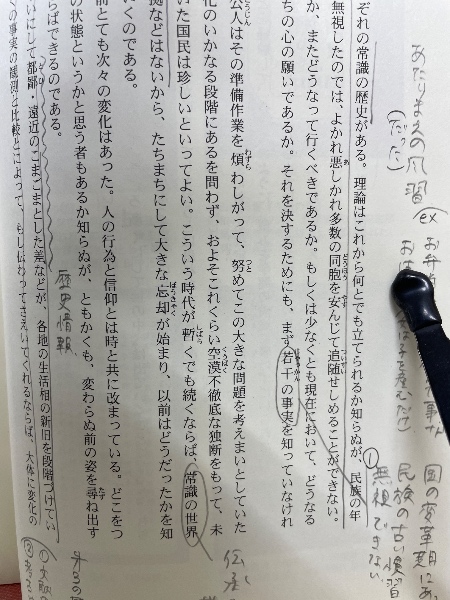 あたりまえの風習
(だった)
(ex
国の変革期にあ
民族の古い慣習
無視できない
①
ぞれの常識の歴史がある。理論はこれから何とでも立てられるか知らぬが、民族の年
無視したのでは、よかれ悪しかれ多数の同胞を安んじて追随せしめることができない。
か、またどうなって行くべきであるか。もしくは少なくとも現在において、どうなる
ちの心の願いであるか。それを決するためにも、まず若干の事実を知っていなけれ
公人はその準備作業を煩わしがって、努めてこの大きな問題を考えまいとしていた
化のいかなる段階にあるを問わず、およそこれくらい空漠不徹底な独断をもって、未
いた国民は珍しいといってよい。こういう時代が暫くでも続くならば、常識の世界
拠などはないから、たちまちにして大きな忘却が始まり、以前はどうだったかを知
くのである。
前とても次々の変化はあった。人の行為と信仰とは時と共に改まっている。どこをつ
の状態というかと思う者もあるか知らぬが、ともかくも、変わらぬ前の姿を尋ね出す
らばできるのである。
歴史情報
いにして都鄙・遠近のこまごまとした差などが、各地の生活相の新旧を段階づけてい
の事実の観測と比較とによって、もし伝わってさえいてくれるならば、大体に変化の